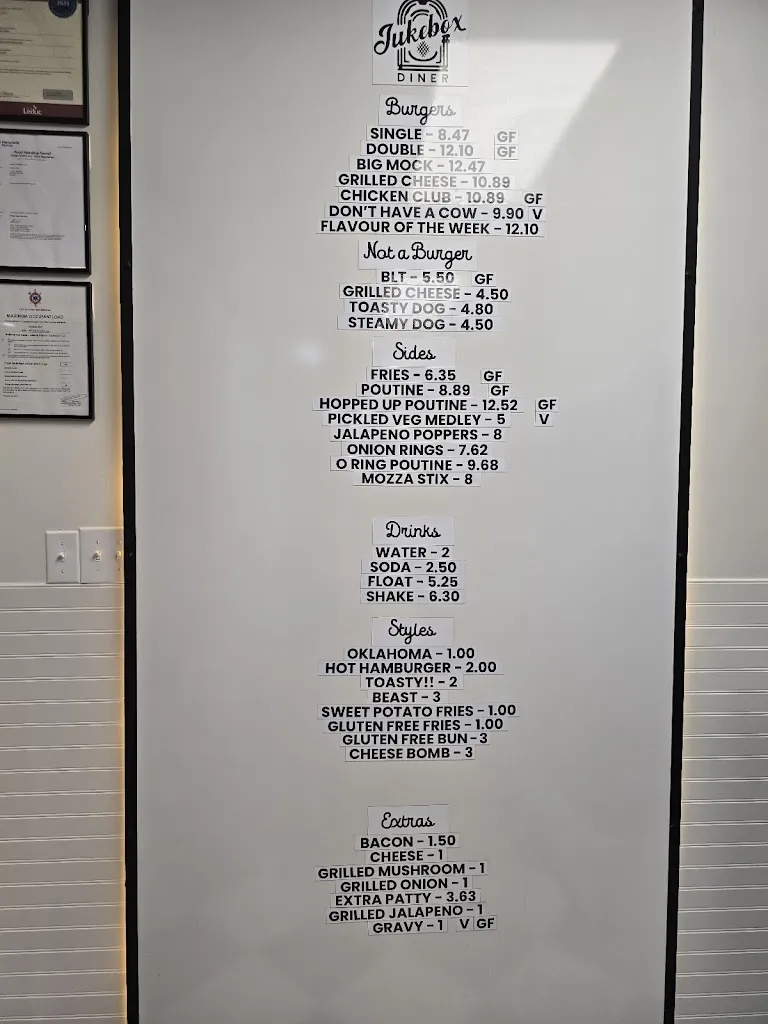 2023
Leduc
MAXIMUM OCCUPANT LOAD
Jukebox
DINER
Burgers
SINGLE - 8.47 GF
DOUBLE - 12.10 GF
BIG MOCK - 12.47
GRILLED CHEESE - 10.89
CHICKEN CLUB - 10.89 GF
DON'T HAVE A COW - 9.90 V
FLAVOUR OF THE WEEK - 12.10
Not a Burger
BLT - 5.50 GF
GRILLED CHEESE - 4.50
TOASTY DOG - 4.80
STEAMY DOG - 4.50
Sides
FRIES - 6.35 GF
POUTINE - 8.89 GF
HOPPED UP POUTINE - 12.52 GF
PICKLED VEG MEDLEY - 5 V
JALAPENO POPPERS - 8
ONION RINGS - 7.62
O RING POUTINE - 9.68
MOZZA STIX - 8
Drinks
WATER - 2
SODA - 2.50
FLOAT - 5.25
SHAKE - 6.30
Styles
OKLAHOMA - 1.00
HOT HAMBURGER - 2.00
TOASTY!! - 2
BEAST - 3
SWEET POTATO FRIES - 1.00
GLUTEN FREE FRIES - 1.00
GLUTEN FREE BUN - 3
CHEESE BOMB - 3
Extras
BACON - 1.50
CHEESE - 1
GRILLED MUSHROOM - 1
GRILLED ONION - 1
EXTRA PATTY - 3.63
GRILLED JALAPENO - 1
GRAVY - 1 V GF